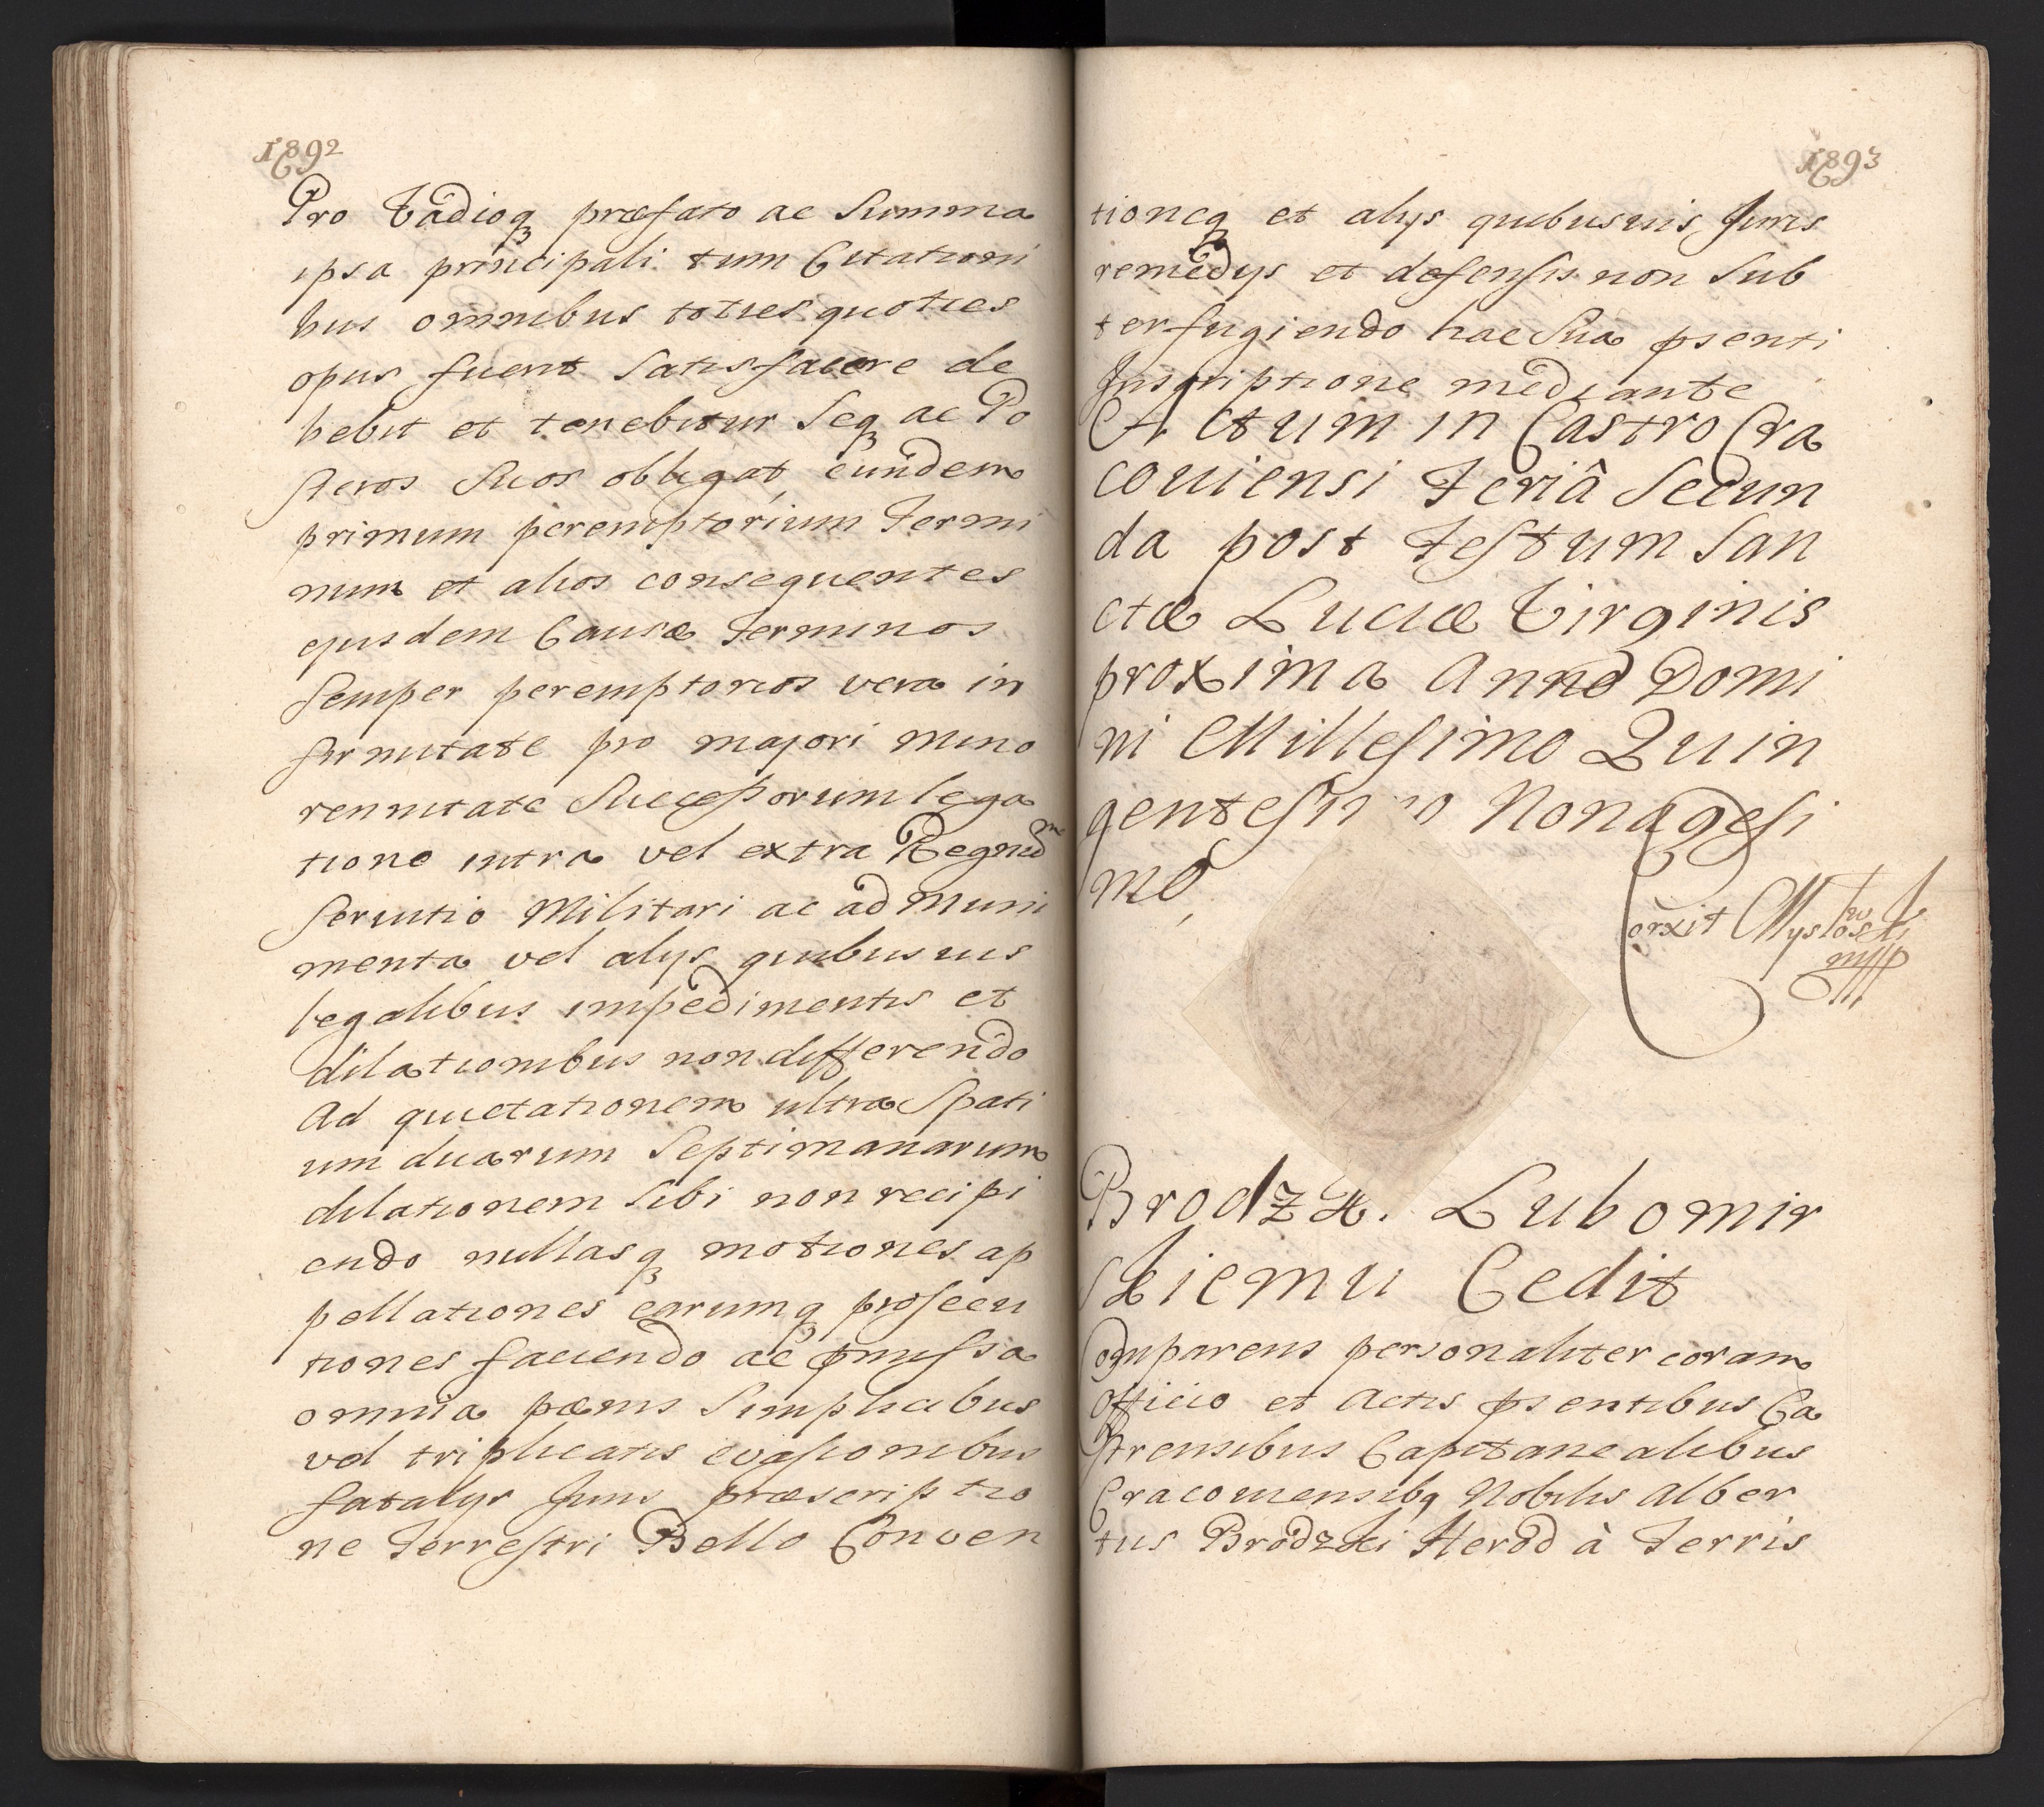 1892
Pro Vadioq præfato ac Summa
ipsa principali tum Citationi
bus omnibus toties quoties
opus fuerit Satisfacere de
bebit et tenebitur Seq ac Po
steros Suos obligat, eundem
primum peremptorium Termi
num et alios consequentes
ejusdem Causæ Terminos
Semper peremptorios vera in
firmitate pro majori mino
rennitate Successorum lega
tione intra vel extra Regnũ
Servitio Militari ac ad Muni
menta vel alys quibusvis
legalibus impedimentis et
dilationibus non differendo
Ad quietationem ultra Spati
um duarum Septimanarum
dilationem Sibi non recipi
endo nullasq motiones ap
pellationes earumq prosecu
tiones faciendo ac pmissa
omnia pænis Simplicibus
vel triplicatis evasionibus
fatalys Juris præscriptio
ne Terrestri Bello Conven
1893
tioneq et alys quibusvis Juris
remedys et defensis non Sub
terfugiendo hac Sua psenti
Inscriptione mediante
Actum in Castro Cra
coviensi Feriâ Secun
da post Festum San
ctæ Luciæ Virginis
proxima Anno Domi
ni Millesimo Quin
gentesimo Nonagesi
mo,
Brodzk. Lubomir
skiemu Cedit
Comparens personaliter coram
Officio et Actis psentibus Ca
strensibus Capitanealibus
Cracoviensibq Nobilis Alber
tus Brodzki Hered à Terris